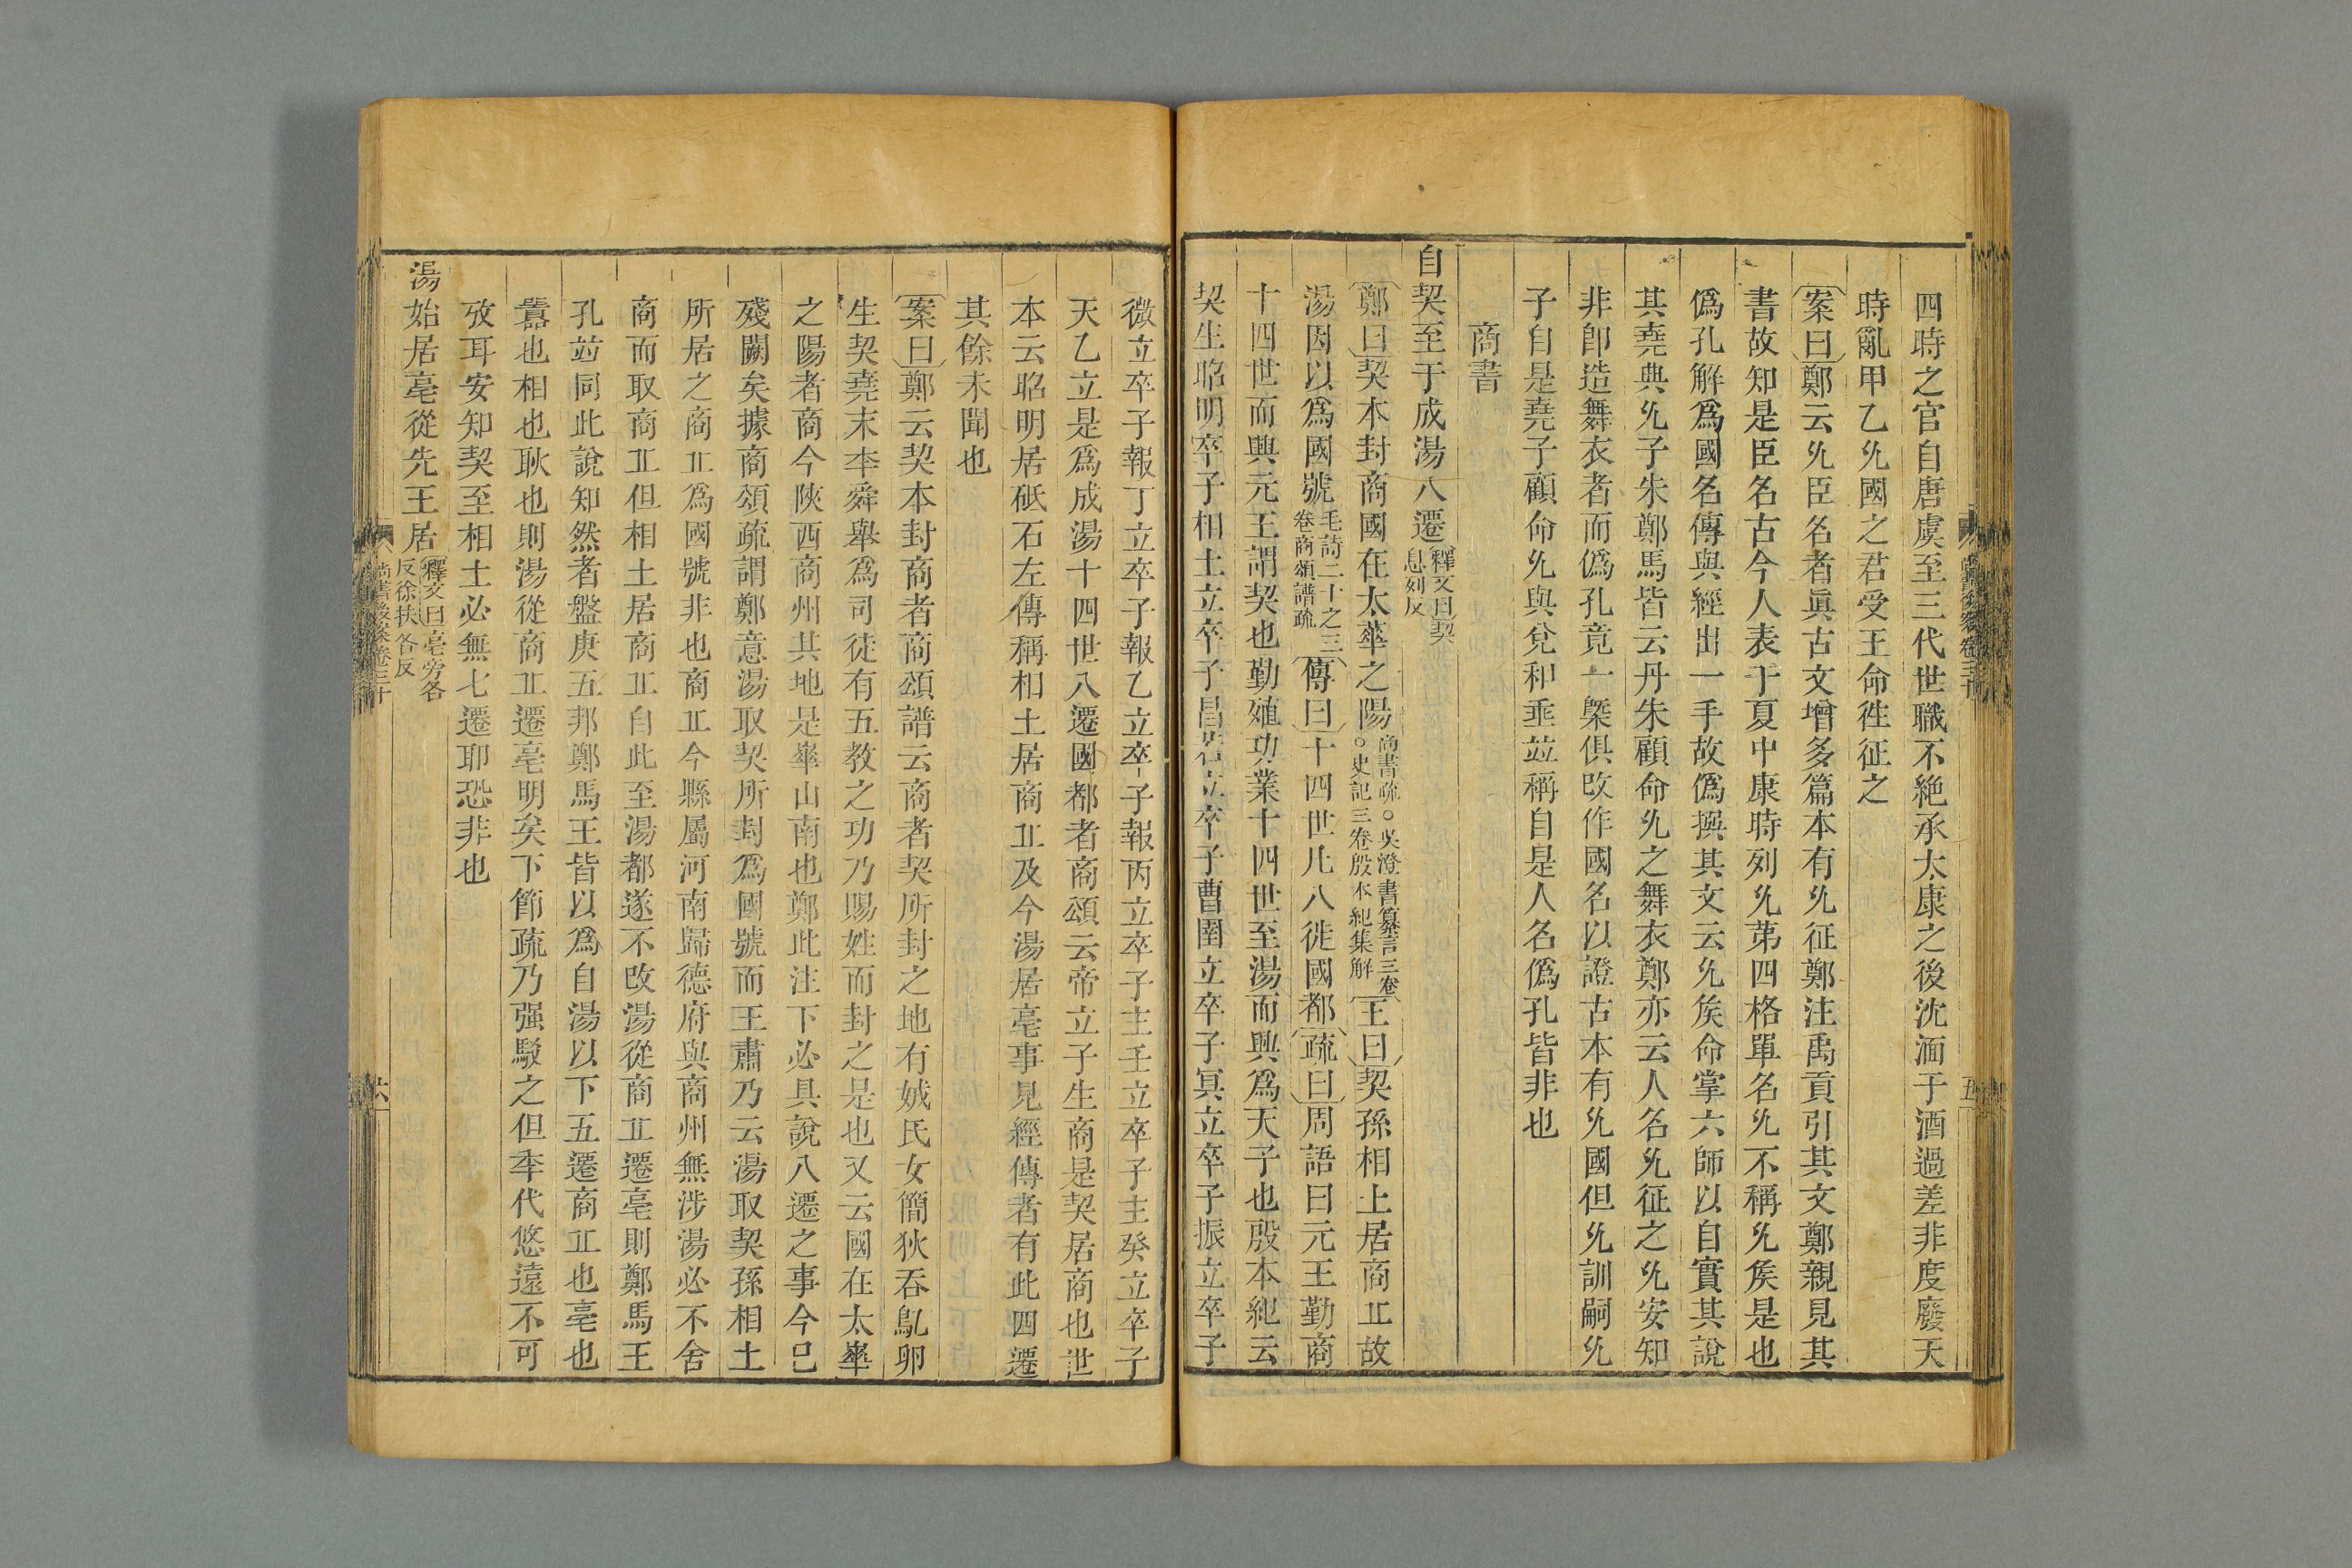 四時之官自唐虞至三代世職不絶承太康之後沈湎于酒過差非度廢天
時亂甲乙㕙國之君受王命徃征之
案曰鄭云㕙臣名者眞古文增多篇本有㕙征鄭注禹貢引其文鄭親見其
書故知是臣名古今人表于夏中康時列㕙苐四格單名㕙不稱㕙矦是也
僞孔解爲國名傳與經出一手故僞撰其文云㕙矦命掌六師以自實其說
其堯典㕙子朱鄭馬皆云丹朱顧命㕙之舞衣鄭亦云人名㕙征之㕙安知
非卽造舞衣者而僞孔竟一槩俱改作國名以證古本有㕙國但㕙訓嗣㕙
子自是堯子顧命㕙與兌和垂竝稱自是人名僞孔皆非也
商書
自契至于成湯八遷釋文曰契息列反
鄭曰契本封商國在太華之陽尚書疏○吳澄書纂言三卷○史記三卷殷本紀集解王曰契孫相土居商丠故
湯因以爲國號毛詩二十之三卷商頌譜疏傳曰十四世凡八徙國都疏曰周語曰元王勤商
十四世而興元王謂契也勤殖功業十四世至湯而興爲天子也殷本紀云
契生昭明卒子相土立卒子昌若立卒子曹圉立卒子冥立卒子振立卒子
微立卒子報丁立卒子報乙立卒子報丙立卒子主壬立卒子主癸立卒子
天乙立是爲成湯十四世八遷國都者商頌云帝立子生商是契居商也世
本云昭明居砥石左傳稱相土居商丠及今湯居亳事見經傳者有此四遷
其餘未聞也
案曰鄭云契本封商者商頌譜云商者契所封之地有娀氏女簡狄吞鳦卵
生契堯末秊舜舉爲司徒有五教之功乃賜姓而封之是也又云國在太華
之陽者商今陝西商州其地是華山南也鄭此注下必具說八遷之事今已
殘闕矣據商頌疏謂鄭意湯取契所封爲國號而王肅乃云湯取契孫相土
所居之商丠爲國號非也商丠今縣屬河南歸德府與商州無涉湯必不舍
商而取商丠但相土居商丠自此至湯都遂不改湯從商丠遷亳則鄭馬王
孔竝同此說知然者盤庚五邦鄭馬王皆以爲自湯以下五遷商丠也亳也
囂也相也耿也則湯從商丠遷亳明矣下節疏乃强駁之但秊代悠遠不可
攷耳安知契至相土必無七遷耶恐非也
湯始居亳從先王居釋文曰亳旁各反徐扶各反